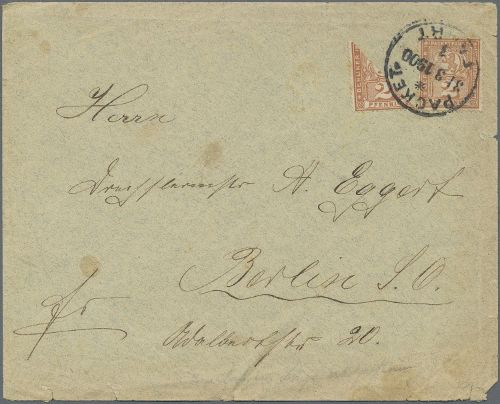 PACKET
31.3.1900
2
PFENNIG
Herrn
Drechslermstr A. Eggert
Berlin S.O.
Fr
Adalbertstr 20.